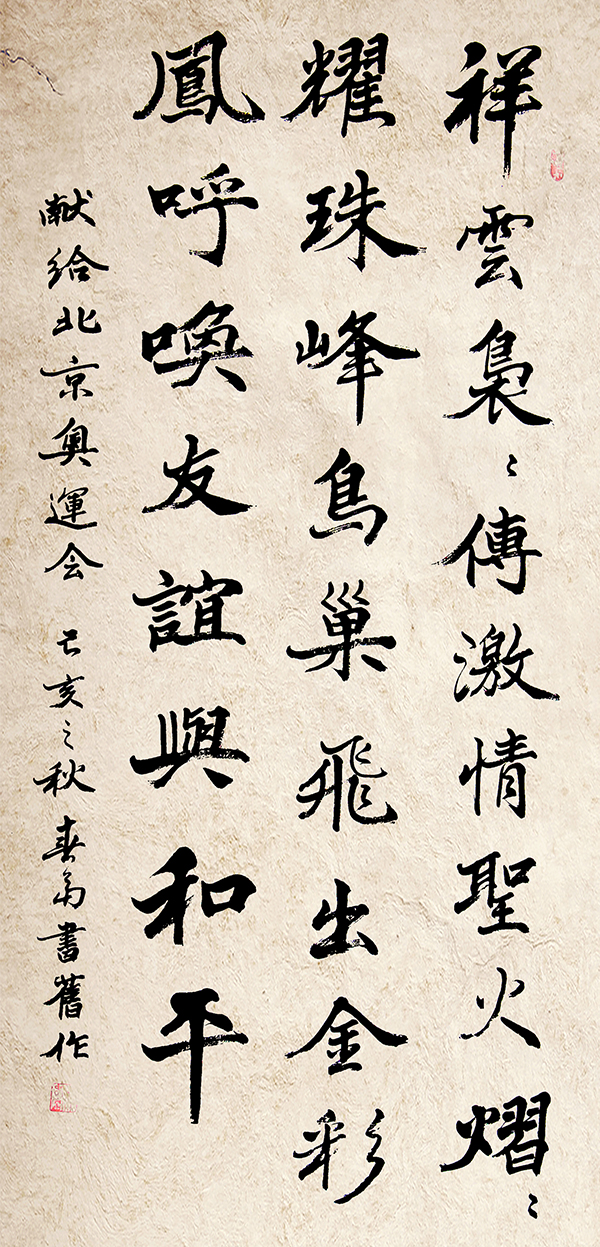 祥雲裊〻傳激情聖火熠〻
耀珠峰鳥巢飛出金彩
鳳呼喚友誼與和平
献給北京奧運会 己亥之秋 春書舊作